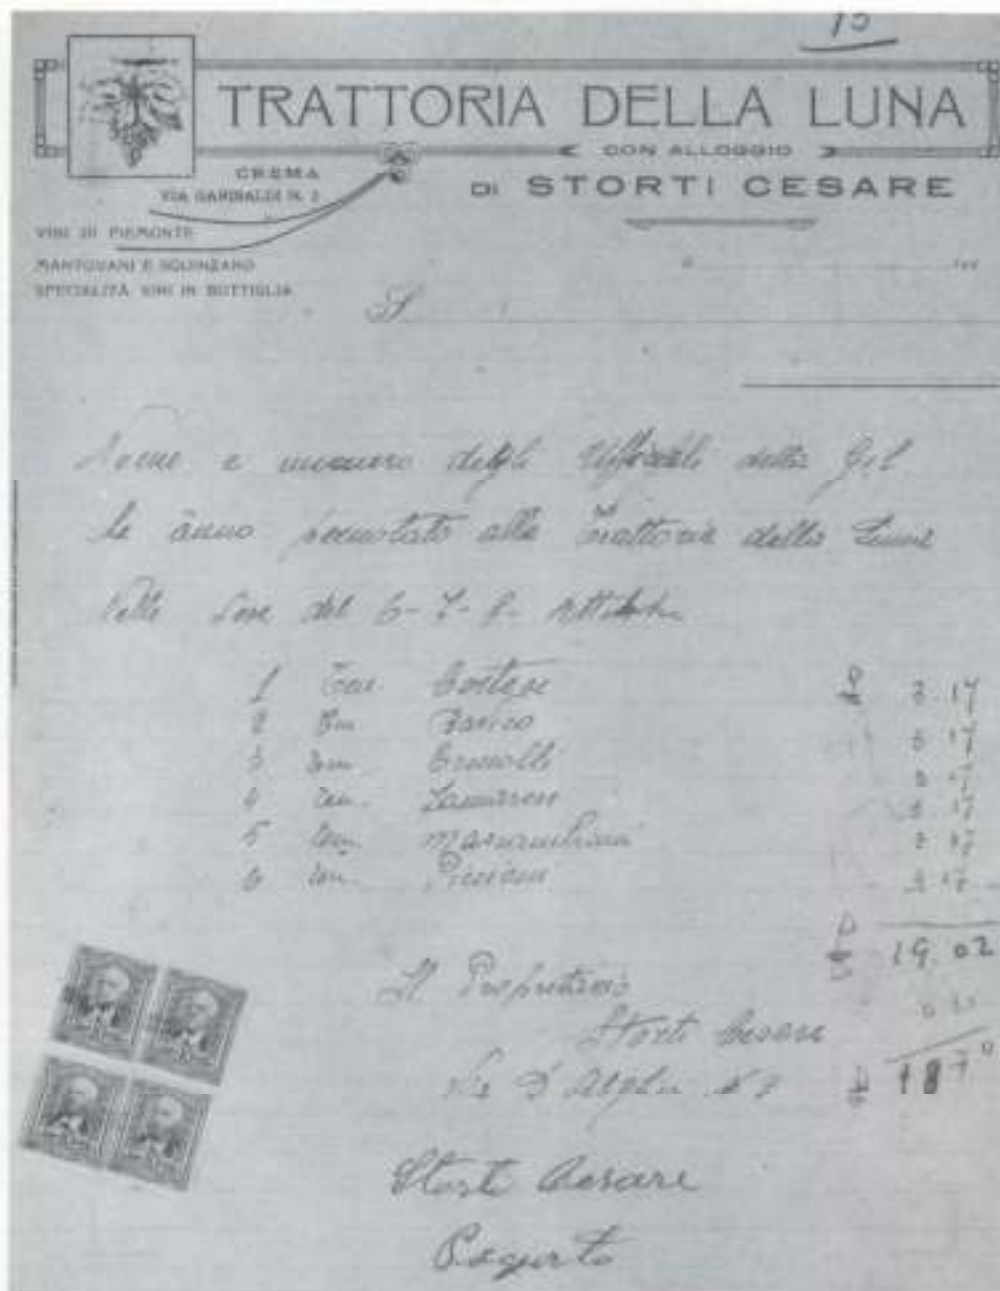 15
TRATTORIA DELLA LUNA
CON ALLOGGIO
DI STORTI CESARE
CREMA
VIA GARIBALDI N. 2
VINI DI PIEMONTE
MANTOVANI E SQUINZANO
SPECIALITÀ VINI IN BOTTIGLIA
Nome e numero degli Ufficiali della Gil
ha anno pernotato alla Trattoria della Luna
nelle sere del 6-7-8- settembre
1 Ten. Cortese 3.17
2 Ten. 3.17
3 Ten. 3.17
4 Ten. 3.17
5 Ten. Massimiliani 3.17
6 Ten. 3.17
19.02
Il Proprietario
Storti Cesare
187
Storti Cesare